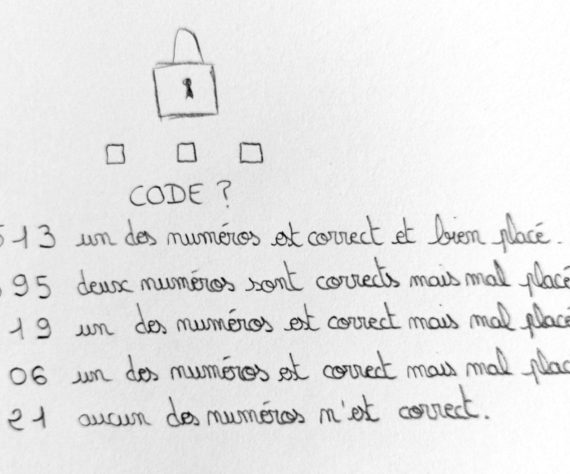 CODE ?
513 un des numéros est correct et bien placé.
95 deux numéros sont corrects mais mal placé
19 un des numéros est correct mais mal placé
06 un des numéros est correct mais mal plac
21 aucun des numéros n'est correct.